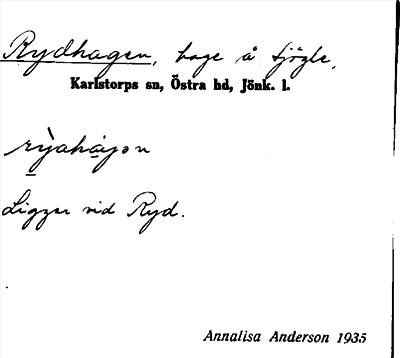 Rydhagen, hage å Sjögle,
Karlstorps sn, Östra hd, Jönk. l.
Ligger vid Ryd.
Annalisa Anderson 1935